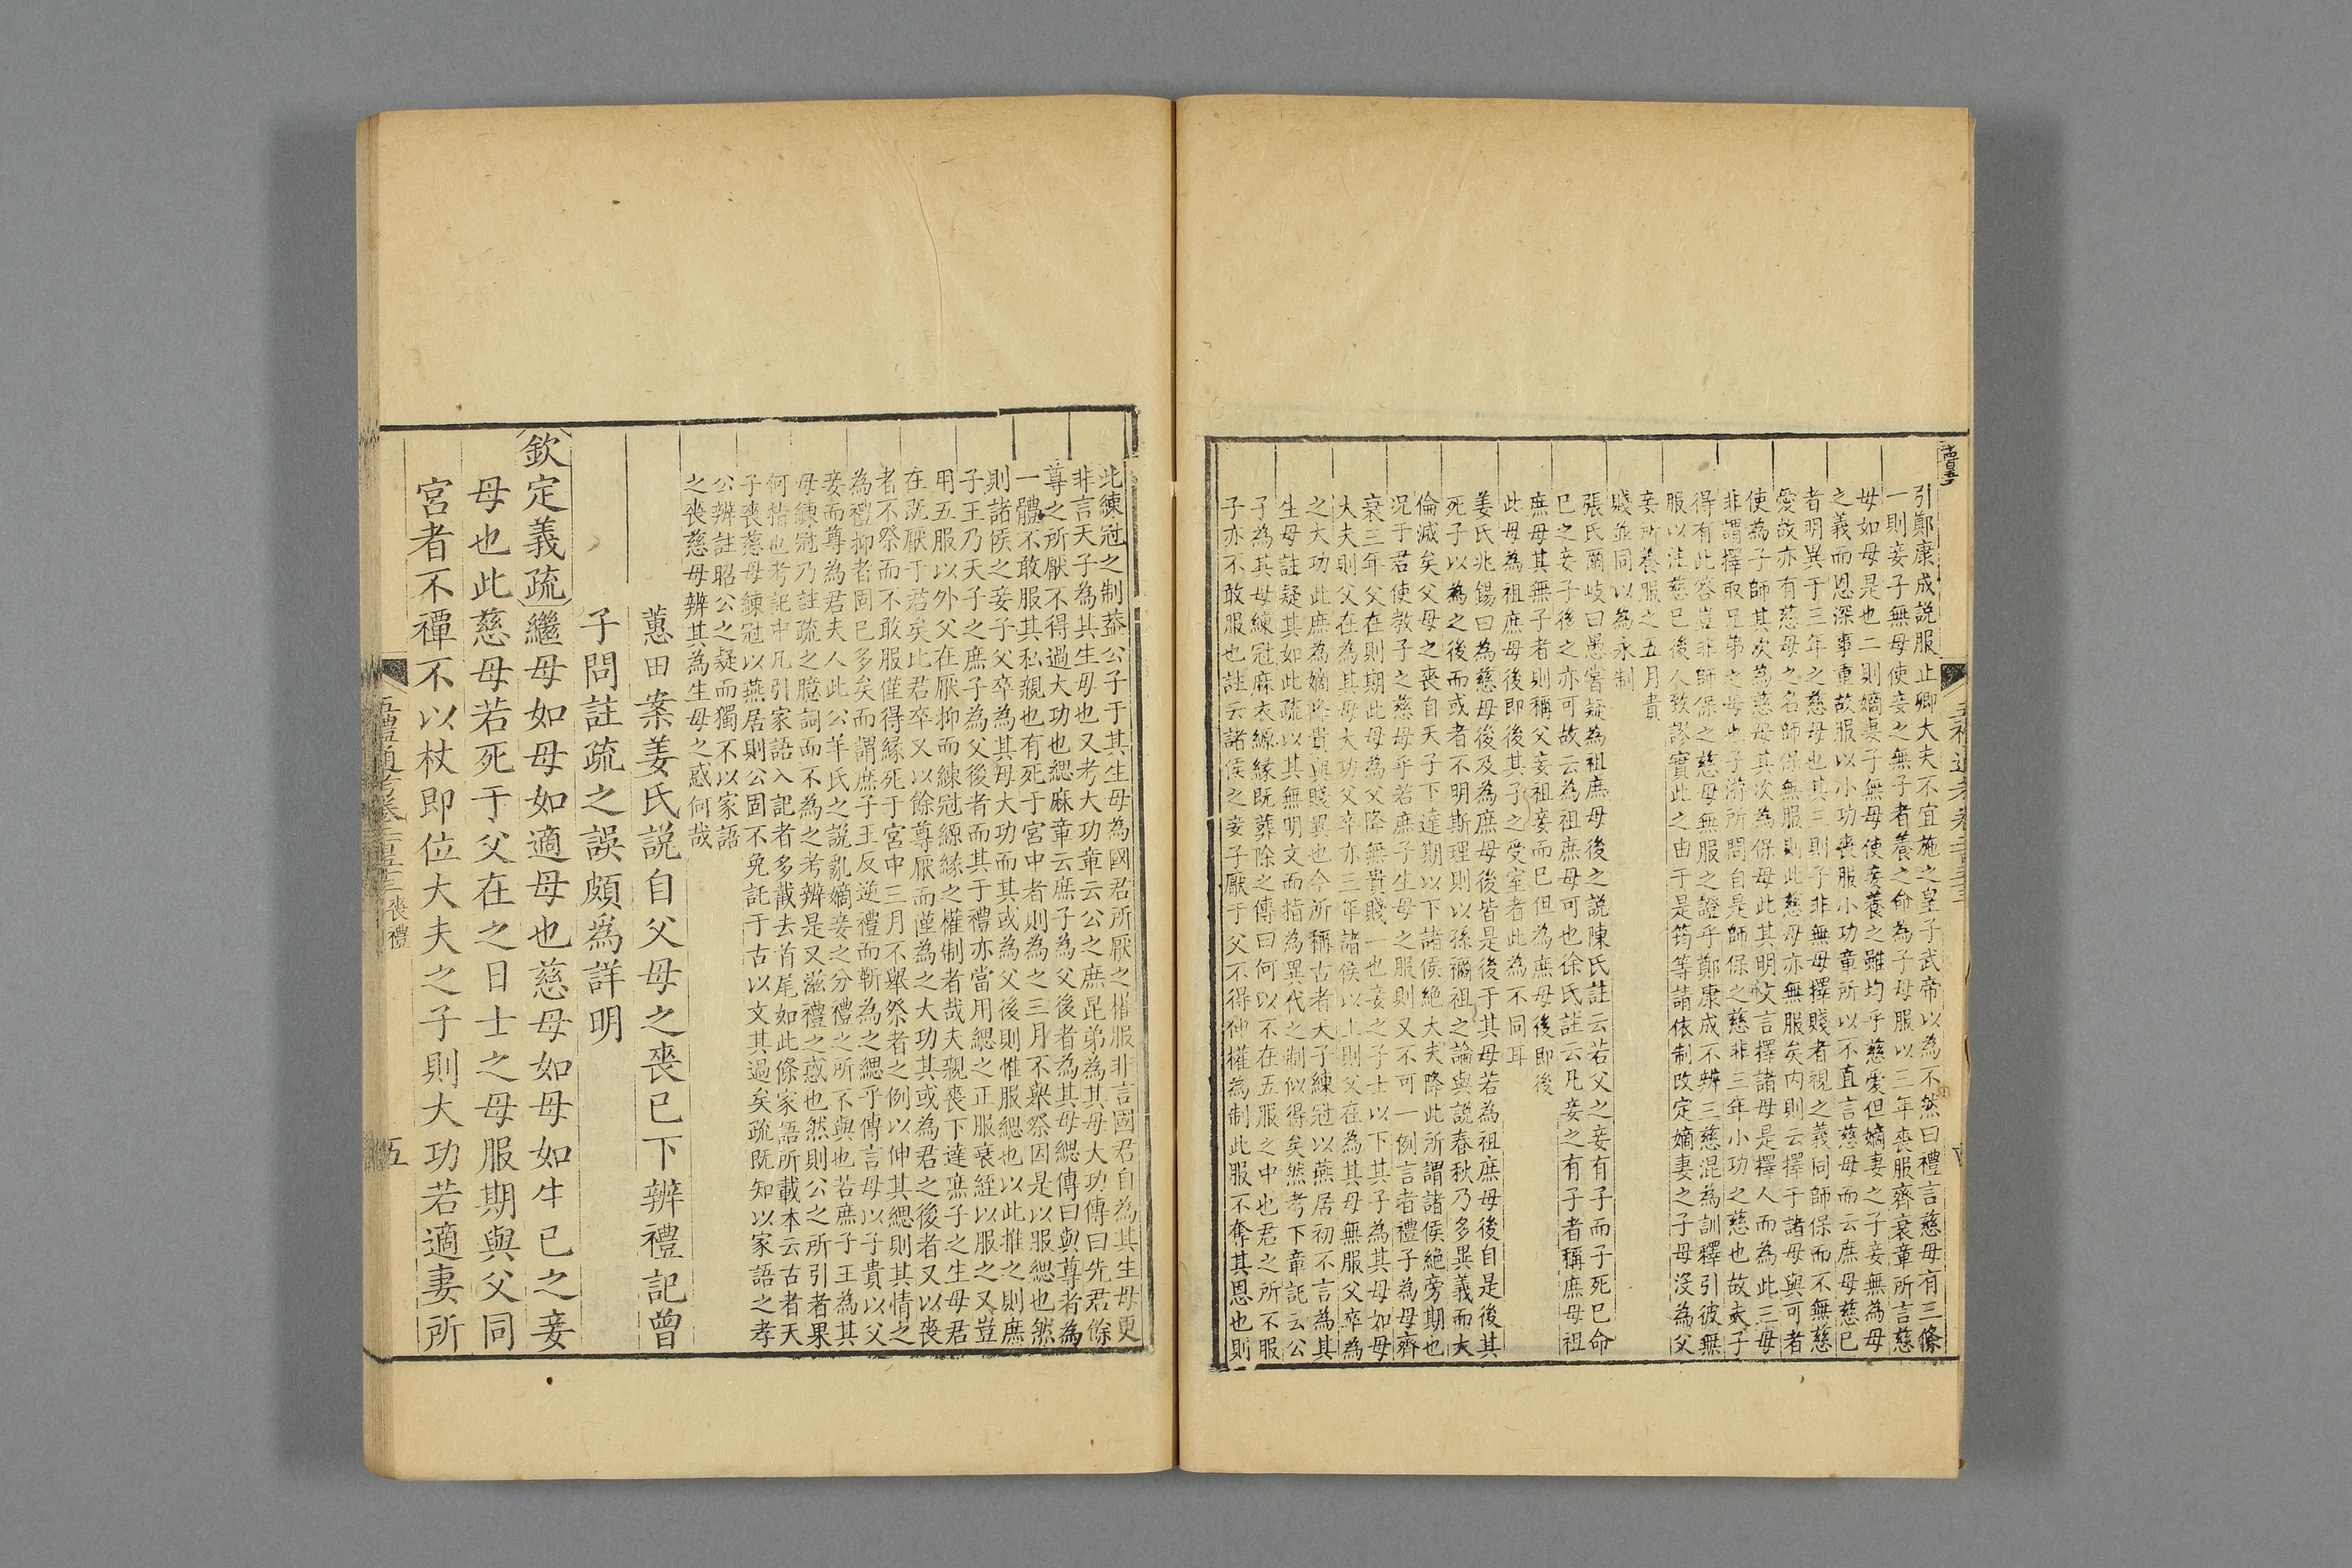 引鄭康成說服止卿大夫不宜施之皇子武帝以為不然曰禮言慈母有三條
一則妾子無母使妾之無子者養之命為子母服以三年喪服齊衰章所言慈
母如母是也二則嫡妻子無母使妾養之雖均乎慈愛但嫡妻之子妾無為母
之義而恩深事重故服以小功喪服小功章所以不直言慈母而云庶母慈已
者明異于三年之慈母也其三則子非無母擇賤者視之義同師保而不無慈
愛故亦有慈母之名師保無服則此慈母亦無服矣内則云擇于諸母與可者
使為子師其次為慈母其次為保母此其明文言擇諸母是擇人而為此三母
非謂擇取兄弟之母也子游所問自是師保之慈非三年小功之慈也故夫子
得有此答豈非師保之慈母無服之證乎鄭康成不辨三慈混為訓釋引彼無
服以注慈已後人致謬實此之由于是筠等請依制改定嫡妻之子母沒為父
妾所養服之五月貴
賤並同以為永制
張氏爾岐曰愚嘗疑為祖庶母後之說陳氏註云若父之妾有子而子死已命
已之妾子後之亦可故云為祖庶母可也徐氏註云凡妾之有子者稱庶母祖
庶母其無子者則稱父妾祖妾而已但為庶母後即後
此母為祖庶母後即後其子之受室者此為不同耳
姜氏兆錫曰為慈母後及為庶母後皆是後于其母若為祖庶母後自是後其
死子以為之後而或者不明斯理則以孫禰祖之論與說春秋乃多異義而大
倫滅矣父母之喪自天子下達期以下諸侯絶大夫降此所謂諸侯絶旁期也
况于君使教子之慈母乎若庶子生母之服則又不可一例言者禮子為母齊
衰三年父在則期此母為父降無貴賤一也妾之子士以下其子為其母如母
大夫則父在為其母大功父卒亦三年諸侯以上則父在為其母無服父卒為
之大功此庶為嫡降貴與賤異也今所稱古者天子練冠以燕居初不言為其
生母註疑其如此疏以其無明文而指為異代之制似得矣然考下章記云公
子為其母練冠麻衣縓緣既葬除之傳曰何以不在五服之中也君之所不服
子亦不敢服也註云諸侯之妾子厭于父不得伸權為制此服不奪其恩也則
此練冠之制葢公子于其生母為國君所厭之權服非言國君自為其生母更
非言天子為其生母也又考大功章云公之庶昆弟為其母大功傳曰先君餘
尊之所厭不得過大功也緦麻章云庶子為父後者為其母緦傳曰與尊者為
一體不敢服其私親也有死于宮中者則為之三月不舉祭因是以服緦也然
則諸侯之妾子父卒為其母大功而其或為父後則惟服緦也以此推之則庶
子王乃天子之庶子為父後者而其于禮亦當用緦之正服衰絰以服之又豈
用五服以外父在厭抑而練冠縓緣之權制者哉夫親喪下達庶子之生母君
在既厭于若矣此君卒又以餘尊厭而僅為之大功其或為君之後者又以喪
者不祭而不敢服僅得緣死于宮中三月不舉祭者之例以伸其緦則其情之
為禮抑者固已多矣而謂庶子王反逆禮而靳為之緦乎傳言母以子貴以父
妾而尊為君夫人此公羊氏之說亂嫡妾之分禮之所不與也若庶子王為其
母練冠乃註疏之臆詞而不為之考辨是又滋禮之惑也然則公之所引者果
何指也考記中凡引家語入記者多截去首尾如此條家語所載本云古者天
子喪慈母練冠以燕居則公固不免託于古以文其過矣疏既知以家語之孝
公辨註昭公之疑而獨不以家語
之喪慈母辨其為生母之惑何哉
蕙田案姜氏說自父母之喪已下辨禮記曾
子問註疏之誤頗爲詳明
欽定義疏繼母如母如適母也慈母如母如生己之妾
母也此慈母若死于父在之日士之母服期與父同
宮者不禫不以杖即位大夫之子則大功若適妻所
五禮通考卷二百五十三 喪禮
五